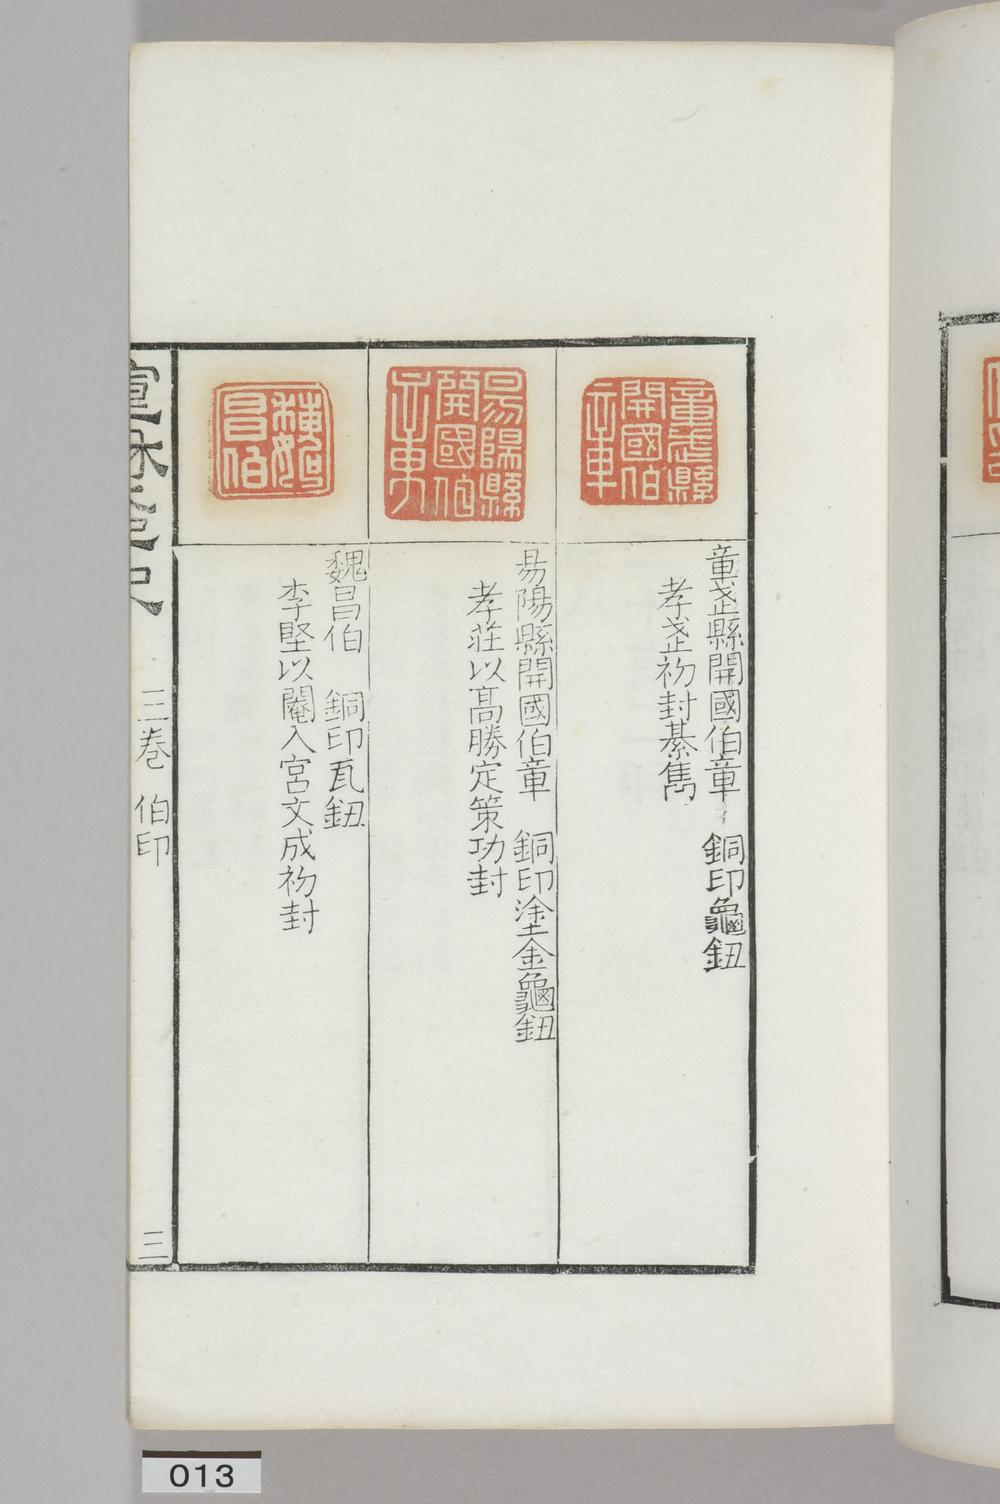 童武縣開國伯章 銅印龜鈕
孝武初封綦儁
易陽縣開國伯章 銅印塗金龜鈕
孝莊以高勝定策功封
魏昌伯 銅印瓦鈕
李堅以閹入宮文成初封
宣和集古印史
三卷 伯印
三
013